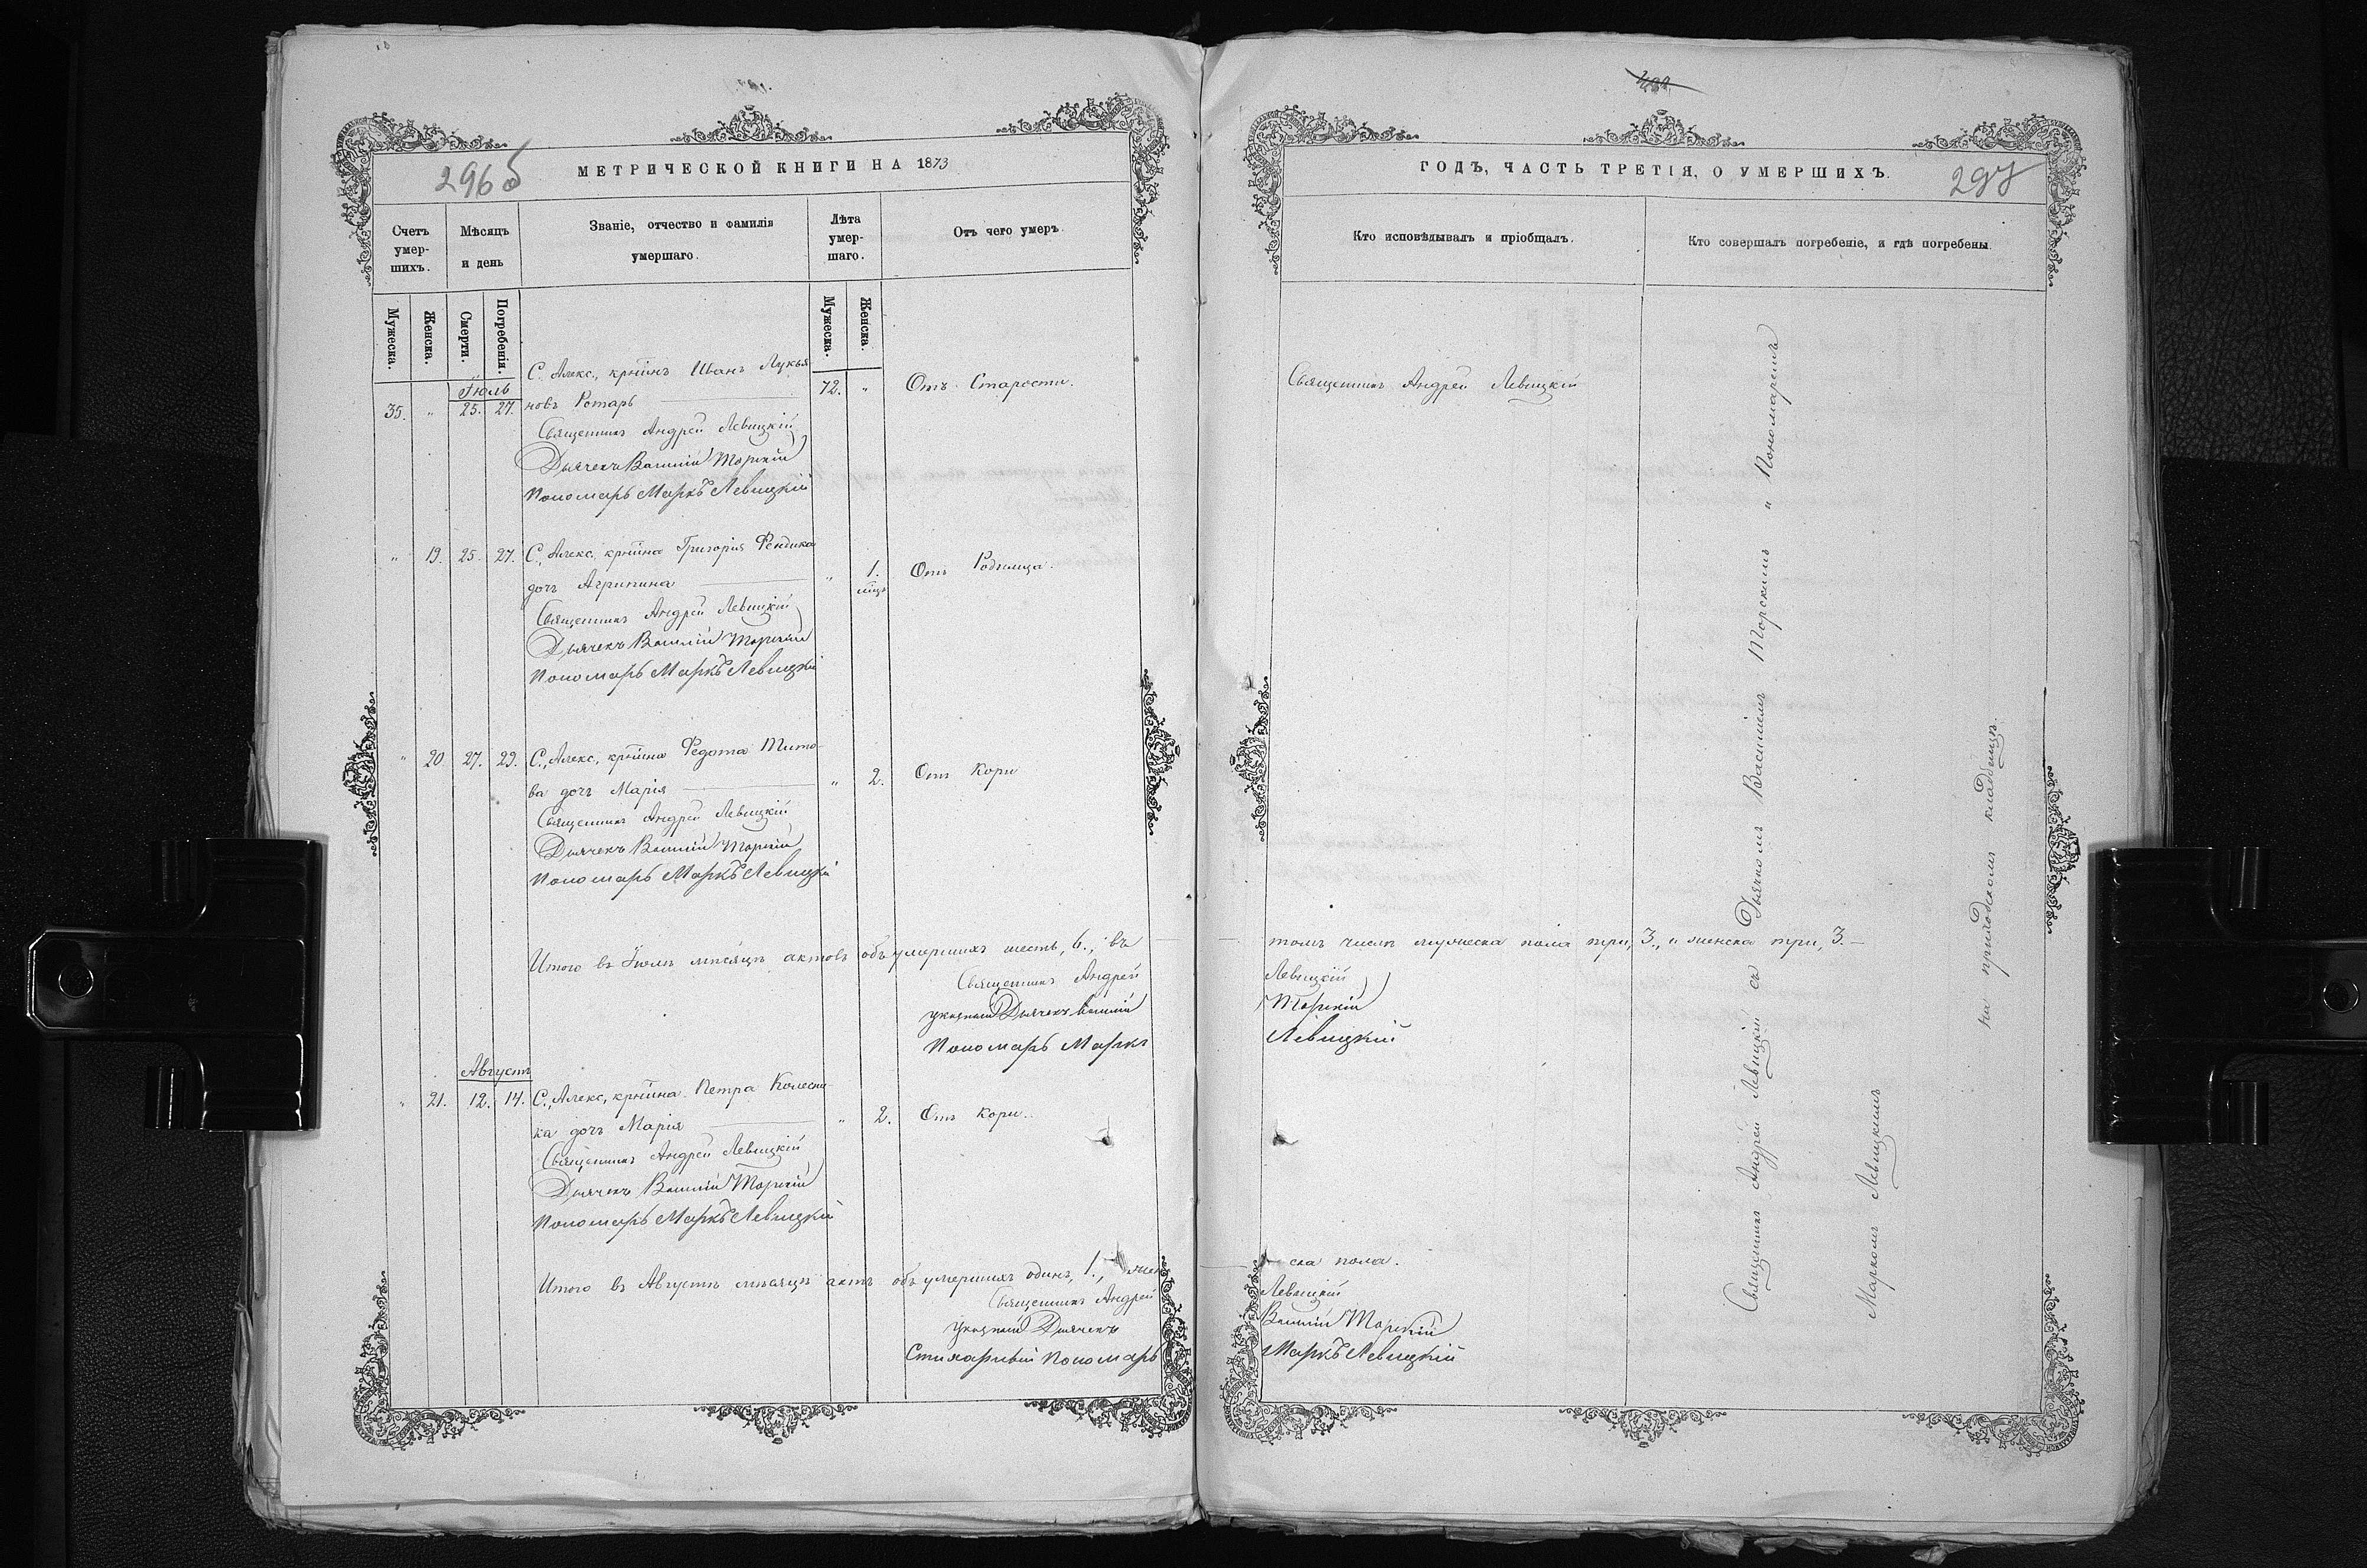 296 б
МЕТРИЧЕСКОЙ КНИГИ НА 1873
Счетъ умер-шихъ.
Мѣсяцъ и день
Званіе, отчество и фамилія умершаго.
Лѣта умер-шаго.
Отъ чего умеръ.
Мужеска.
Женска.
Смерти.
Погребенія.
Мужеска.
Женска.
Іюль
35. " 25. 27. С. Алекс., кр҃нинъ Иванъ Лукья 72. " Отъ Старости.
новъ Ротарь
Священникъ Андрей Левицкій
Дьячекъ Василій Торскій
Пономарь Маркъ Левицкій
" 19. 25. 27. С., Алекс. кр҃нина Григорія Фендика
дочь Агрипина " 1. мц҃ъ Отъ Родимца.
Священникъ Андрей Левицкій
Дьячекъ Василій Торскій
Пономарь Маркъ Левицкій
" 20. 27. 29. С., Алекс., кр҃нина Федота Тито
ва дочь Марія " 2. Отъ Кори
Священникъ Андрей Левицкій
Дьячекъ Василій Торскій
Пономарь Маркъ Левицкій
Итого въ Іюлѣ мѣсяцѣ актовъ объ умершихъ шесть, 6., въ
Священникъ Андрей
указный Дьячекъ Василій
Пономарь Маркъ
Августъ
" 21. 12. 14. С., Алекс., кр҃нина Петра Колесни
ка дочь Марія " 2. Отъ кори.
Священникъ Андрей Левицкій
Дьячекъ Василій Торскій
Пономарь Маркъ Левицкій
Итого въ Августѣ мѣсяцѣ актъ объ умершихъ одинъ, 1., жен
Священникъ Андрей
Указный Дьячекъ
Стихарный Пономарь
297
ГОДЪ, ЧАСТЬ ТРЕТІЯ, О УМЕРШИХЪ.
Кто исповѣдывалъ и пріобщалъ.
Кто совершалъ погребеніе, и гдѣ погребены.
Священникъ Андрей Левицкій
томъ числѣ мужеска пола три, 3., и женска три, 3.
Левицкій
Торскій
Левицкій
ска пола.
Левицкій
Василій Торскій
Маркъ Левицкій
Священникъ Андрей Левицкій съ Дьячкомъ Василіемъ Торскимъ и Пономаремъ
Маркомъ Левицкимъ
на приходскомъ кладбищѣ.